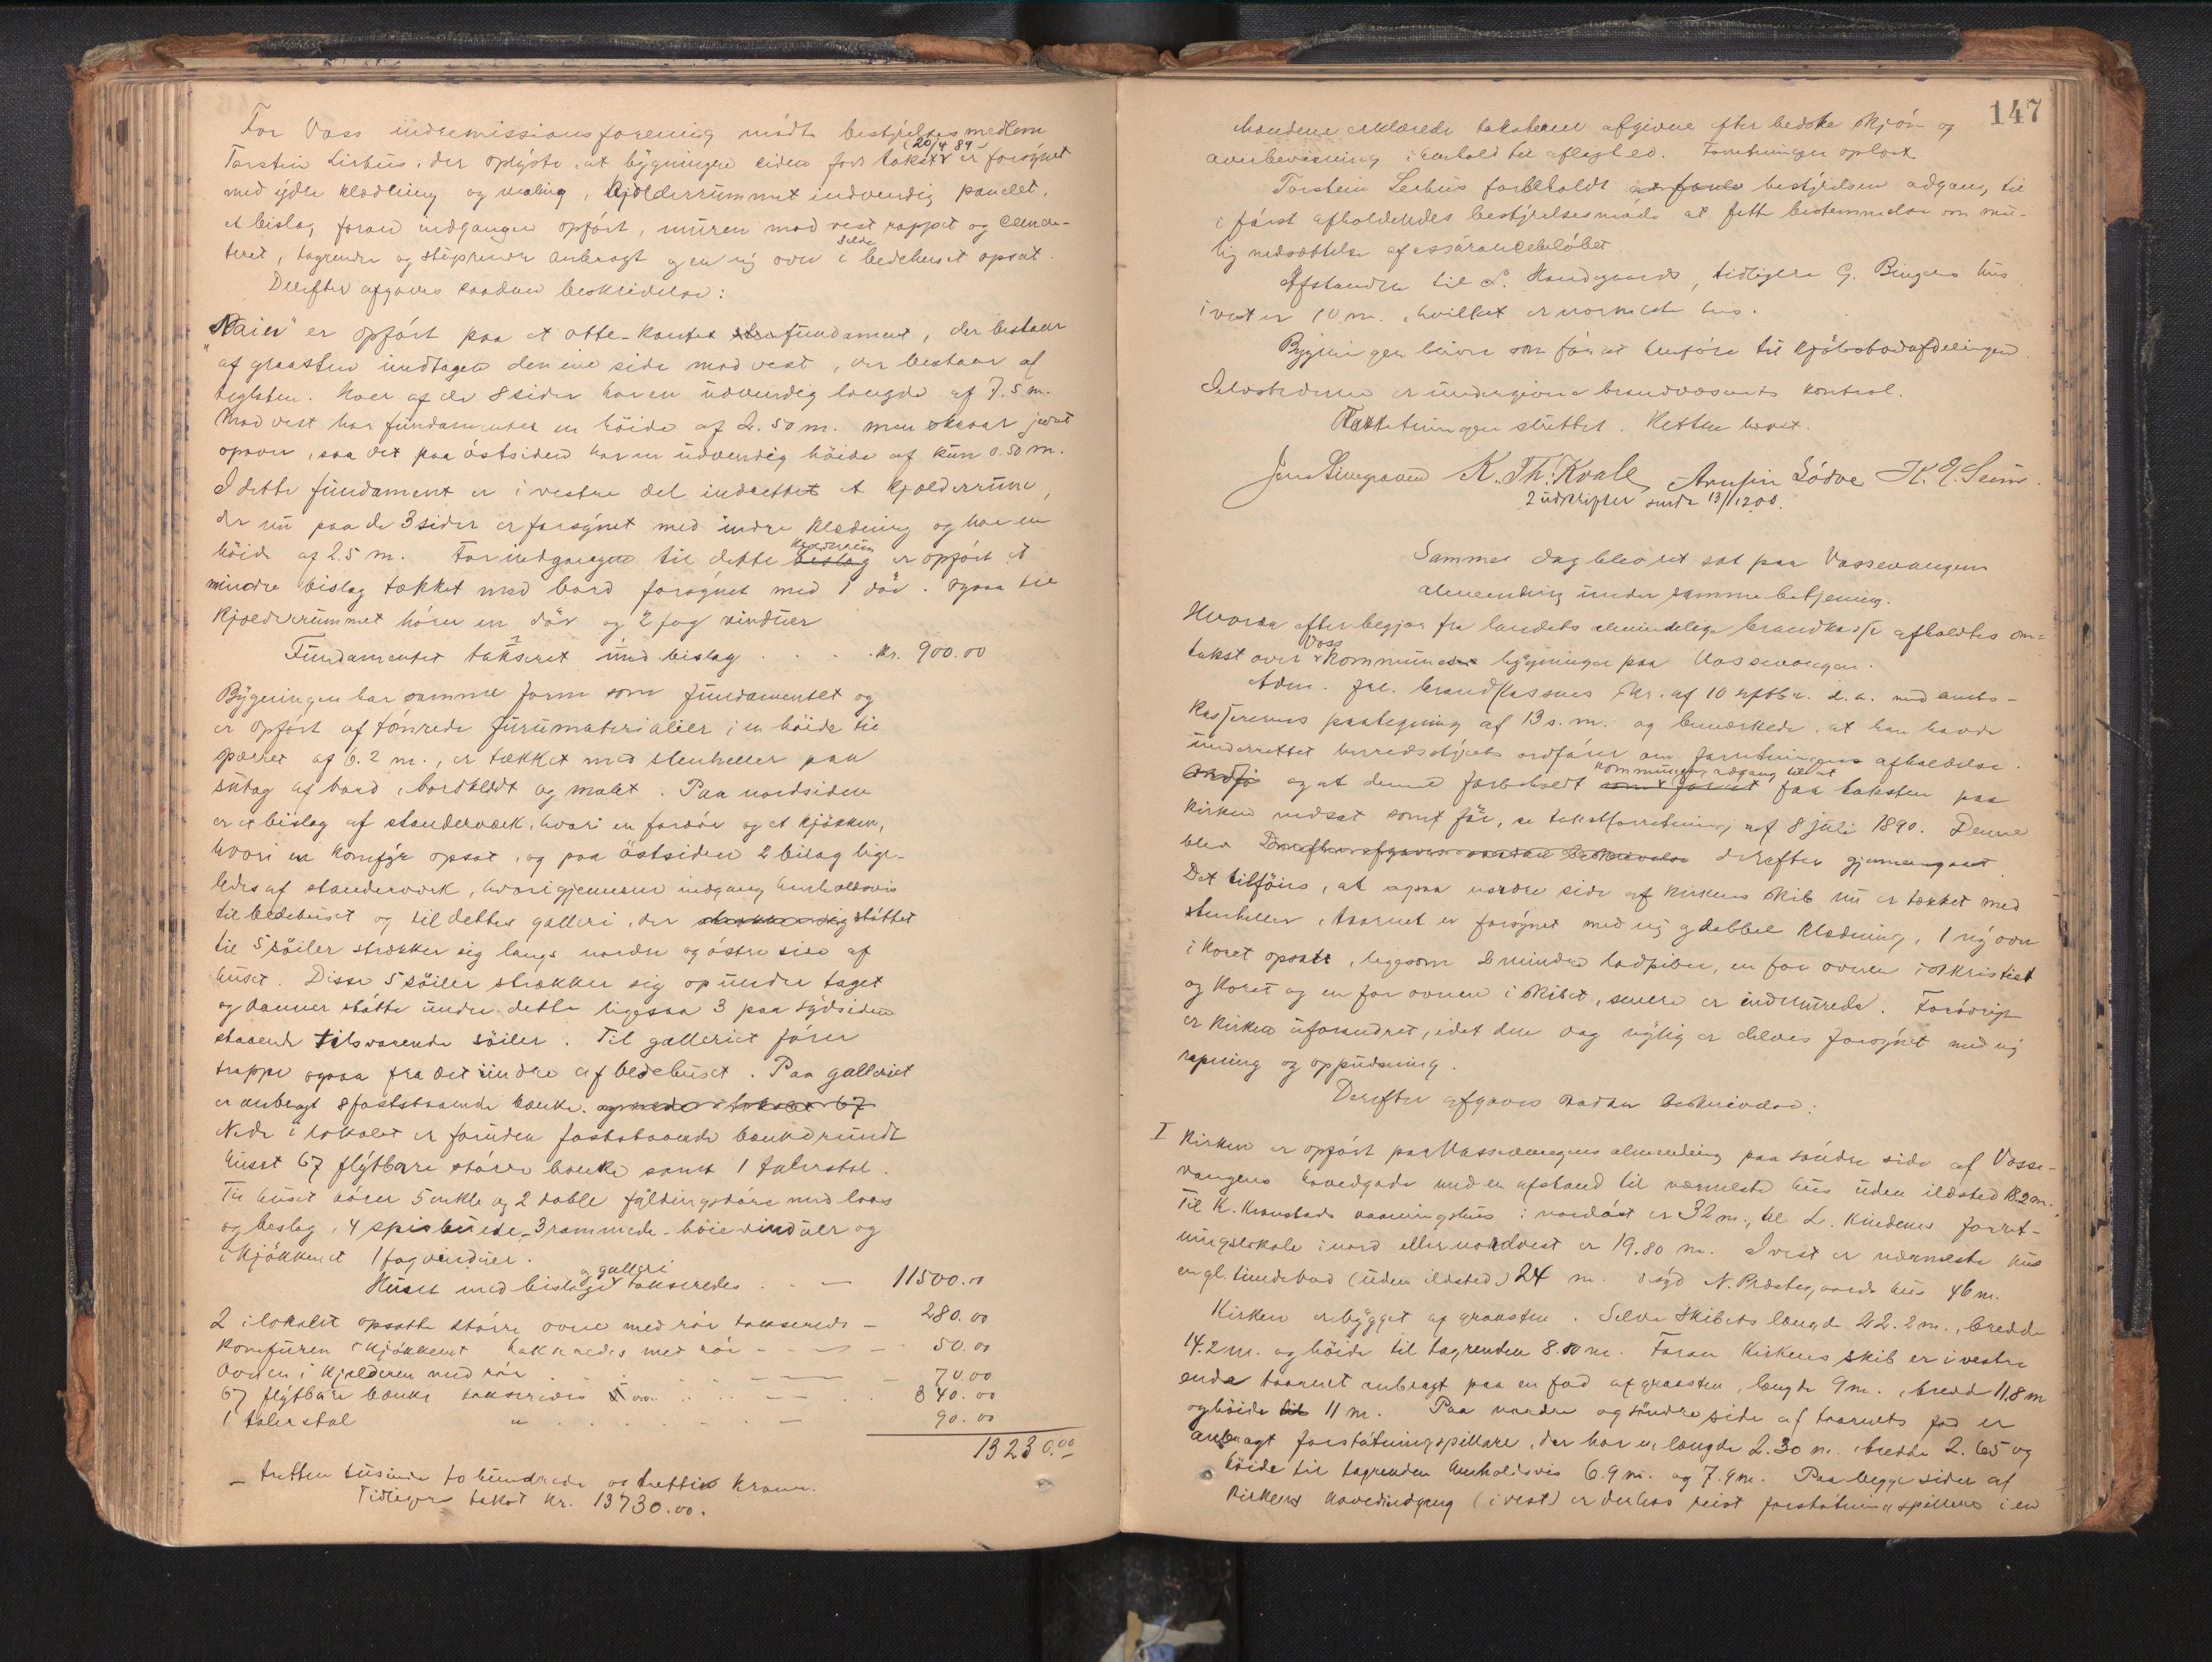 For Voss indremissionsforening mödte bestyrelsesmedlem
Torstein Lirhus, der oplyste, at bygningen siden forr. takst (20/4 89) er forsynet
med ydre klædning og maling, kjælderrummet indvendig panelet,
et bislag foran indgangen opfört, muren mod vest rappet og cemen-
teret, tagrender og anbragt og en ny ovn i selve bedehuset opsat.
Derefter afgaves saadan beskrivelse:
er opfört paa et otte-kantet fundament, der bestaar
af graasten undtagen den ene side mod vest, der bestaar af
teglsten. Hver af de 8 sider har en udvendig længde af 7.5 m.
Mod vest har fundamentet en höide af 2.50 m. men skraar jevnt
opover, saa det paa östsiden har en udvendig höide af kun 0.50 m.
I dette fundament er i vestre del indrettet et kjælderrum,
der nu paa de 3 sider er forsynet med indre klædning og har en
höide af 2.5 m. For indgangen til dette kjælderrum er opfört et
mindre bislag tækket med bord forsynet med 1 dör. Ogsaa til
kjælderrummet hörer en dör og 2 fag vinduer
Fundamentet takseret med bislag . . . . kr. 900.00
Bygningen har samme form som fundamentet og
er opfört af tömrede furumaterialier, i en höide til
sperret af 6.2 m., er tækket med stenheller paa
sutag af bord, bordklædt og malet. Paa nordsiden
er et bislag af standerværk, hvori en fordör og et kjökken,
hvori en komfyr opsat, og paa östsiden 2 bislag lige-
ledes af standerværk, hvorigjennem indgang henholdsvis
til bedehuset og til dettes galleri, der strækker sig stöttet
til 5 söiler strækker sig langs nordre og östre side af
huset. Disse 5 söiler strækker sig op under taget
og danner stötte under dette ligesaa 3 paa sydsiden
staaende tilsvarende söiler. Til galleriet förer
trappe ogsaa fra det indre af bedehuset. Paa galleriet
er anbragt 8 faststaaende bænke. og nede i lokalet 67
Nede i lokalet er foruden faststaaende bænke rundt
huset 67 flytbare större bænke samt 1 talerstol.
Til huset hörer 5 enkle og 2 doble fyldingsdöre med laas
og beslag, 4 spidsbuede, 3 rammede höie vinduer og
i kjökkenet 1 fag vinduer.
Huset med bislage og galleri takseredes . . — 11500.00
2 i lokalet opsatte större ovne med rör takseredes — 280.00
Komfuren i kjökkenet takseredes med rör — — 50.00
Ovnen i kjælderen med rör . . . — — 70.00
67 flytbare bænke takseredes 5.00 . . . — 340.00
1 talerstol " . . . . — 90.00
13230.00
— tretten tusinde to hundrede og tretti kroner.
Tidligere takst kr. 13730.00.
147
Mændene erklærede taksterne afgivne efter bedste skjön og
overbevisning i henhold til aflagt ed. Forretningen oplæst.
Torstein forbeholdt bestyrelsen adgang til
i först afholdendes bestyrelsesmöde at fatte bestemmelse om mu-
lig nedsættelse af assurancebelöbet
Afstanden til L. Haudegaards, tidligere G. Bingers hus
i vest er 10 m., hvilket er nærmeste hus.
Bygningen bliver som för at henföre til kjöbstadafdelingen.
Ildstederne er undergivne brandvæsenets kontrol.
Forretningen sluttet. Retten hævet.
K. Th. Kvale Arnfin Lödve H. J. Seim.
2 udskrifter sendt 13/11 1200.
Samme dag blev ret sat paa Vossevangens
almenning under samme betjening.
Hvorda efter begjær fra landets almindelige brandkasse afholdtes om-
takst over Voss kommunes bygninger paa Vossevangen.
Adm. frl. brandkassens skr. af 10 septbr. d. a. med amts-
kassererens paategning af 13 s. m. og bemærkede, at han havde
underrettet herredsstyrets ordförer om forretningens afholdelse.
og at denne forbeholdt kommunen adgang til at faa taksten paa
kirken nedsat som för, se takstforretning af 8 juli 1890. Denne
blev Derefter afgaves saadan beskrivelse derefter gjennemgaaet.
Det tilföies, at ogsaa nordre side af kirkens skib nu er tækket med
stenheller, taarnet er forsynet med ny dobbel klædning, 1 ny ovn
i koret opsat, ligesom 2 mindre ladpiber, en for ovnen i sakristiet
og koret og en for ovnen i skibet, senere er indmurede. Forövrigt
er kirken uforandret, idet den dog nylig er delvis forsynet med ny
rapning og oppudsning.
Derefter afgaves saadan beskrivelse:
I Kirken er opfört paa Vossevangens almenning paa söndre side af Vosse-
vangens hovedgade med en afstand til nærmeste hus uden ildsted 18.2 m.
Til K. Kronstads vaaningshus i nordöst er 32 m., til L. Kindems forret-
ningslokale i nord eller nordvest er 19.80 m. I vest er nærmeste hus
en gl. tiendebod (uden ildsted) 24 m. I syd N. Præstegaards hus 46 m.
Kirken er bygget af graasten. Selve skibets længde 22.2 m., bredde
14.2 m. og höide til tagrenden 8.80 m. Foran kirkens skib er i vestre
ende taarnet anbragt paa en fod af graasten, længde 9 m., bredde 11,8 m
og höide til 11 m. Paa nordre og söndre side af taarnets fod er
anbragt forstötningspillare, der har en længde 2.30 m. bredde 2.65 og
höide til tagrenden henholdsvis 6.9 m. og 7.9 m. Paa begge sider af
kirkens hovedindgang (i vest) er derhos reist forstötningspillare i en